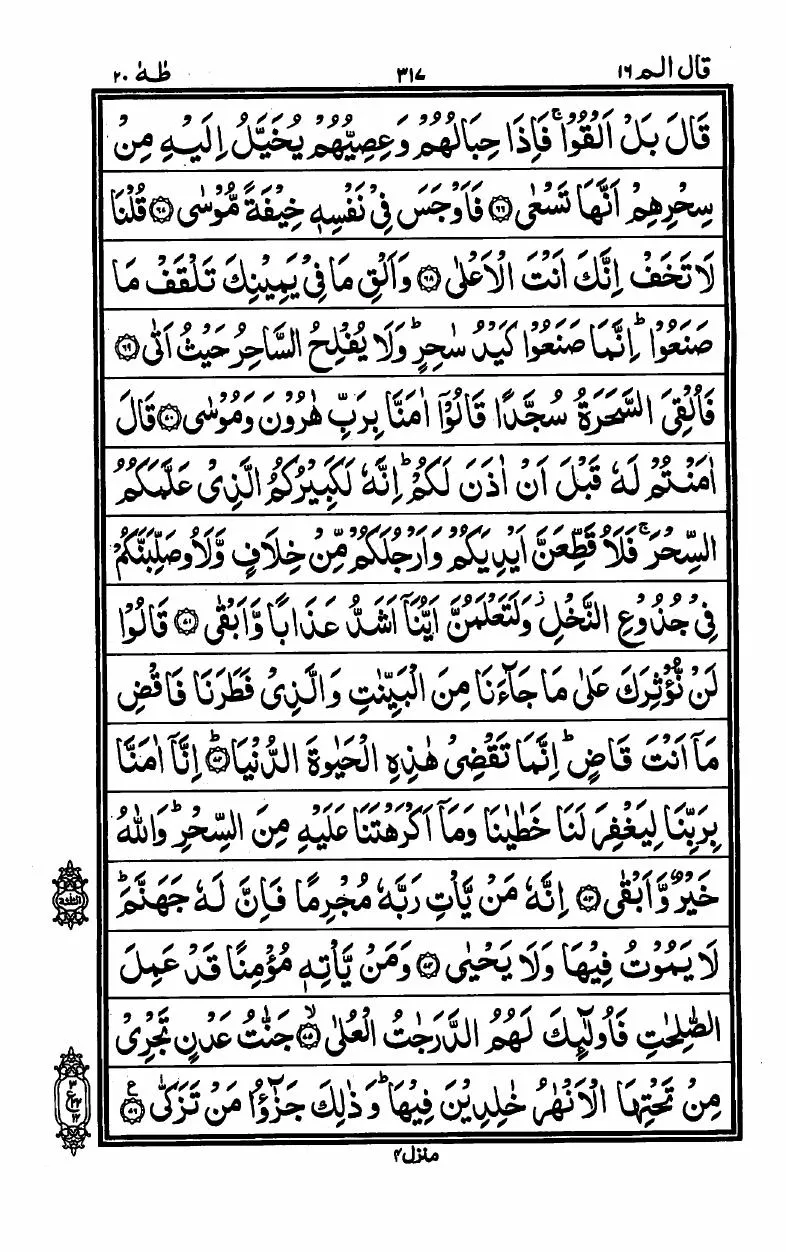 قال الم ١٦ ٣١٧ طٰهٰ ٢٠
قَالَ بَلْ اَلْقُوْا ۚ فَاِذَا حِبَالُهُمْ وَعِصِيُّهُمْ يُخَيَّلُ اِلَيْهِ مِنْ
سِحْرِهِمْ اَنَّهَا تَسْعٰى ۝۶۶ فَاَوْجَسَ فِيْ نَفْسِهٖ خِيْفَةً مُّوْسٰى ۝۶۷ قُلْنَا
لَا تَخَفْ اِنَّكَ اَنْتَ الْاَعْلٰى ۝۶۸ وَاَلْقِ مَا فِيْ يَمِيْنِكَ تَلْقَفْ مَا
صَنَعُوْا ؕ اِنَّمَا صَنَعُوْا كَيْدُ سٰحِرٍ ؕ وَلَا يُفْلِحُ السَّاحِرُ حَيْثُ اَتٰى ۝۶۹
فَاُلْقِيَ السَّحَرَةُ سُجَّدًا قَالُوْٓا اٰمَنَّا بِرَبِّ هٰرُوْنَ وَمُوْسٰى ۝۷۰ قَالَ
اٰمَنْتُمْ لَهٗ قَبْلَ اَنْ اٰذَنَ لَكُمْ ؕ اِنَّهٗ لَكَبِيْرُكُمُ الَّذِيْ عَلَّمَكُمُ
السِّحْرَ ۚ فَلَاُقَطِّعَنَّ اَيْدِيَكُمْ وَاَرْجُلَكُمْ مِّنْ خِلَافٍ وَّلَاُوصَلِّبَنَّكُمْ
فِيْ جُذُوْعِ النَّخْلِ ؗ وَلَتَعْلَمُنَّ اَيُّنَاۤ اَشَدُّ عَذَابًا وَّاَبْقٰى ۝۷۱ قَالُوْا
لَنْ نُّؤْثِرَكَ عَلٰى مَا جَآءَنَا مِنَ الْبَيِّنٰتِ وَالَّذِيْ فَطَرَنَا فَاقْضِ
مَاۤ اَنْتَ قَاضٍ ؕ اِنَّمَا تَقْضِيْ هٰذِهِ الْحَيٰوةَ الدُّنْيَا ۝۷۲ ؕ اِنَّاۤ اٰمَنَّا
بِرَبِّنَا لِيَغْفِرَ لَنَا خَطٰيٰنَا وَمَاۤ اَكْرَهْتَنَا عَلَيْهِ مِنَ السِّحْرِ ؕ وَاللّٰهُ
خَيْرٌ وَّاَبْقٰى ۝۷۳ اِنَّهٗ مَنْ يَّاْتِ رَبَّهٗ مُجْرِمًا فَاِنَّ لَهٗ جَهَنَّمَ ؕ
لَا يَمُوْتُ فِيْهَا وَلَا يَحْيٰى ۝۷۴ وَمَنْ يَّاْتِهٖ مُؤْمِنًا قَدْ عَمِلَ
الصّٰلِحٰتِ فَاُولٰٓئِكَ لَهُمُ الدَّرَجٰتُ الْعُلٰى ۝۷۵ ۙ جَنّٰتُ عَدْنٍ تَجْرِيْ
مِنْ تَحْتِهَا الْاَنْهٰرُ خٰلِدِيْنَ فِيْهَا ؕ وَذٰلِكَ جَزٰٓؤُا مَنْ تَزَكّٰى ۝۷۶ ع
منزل ۴